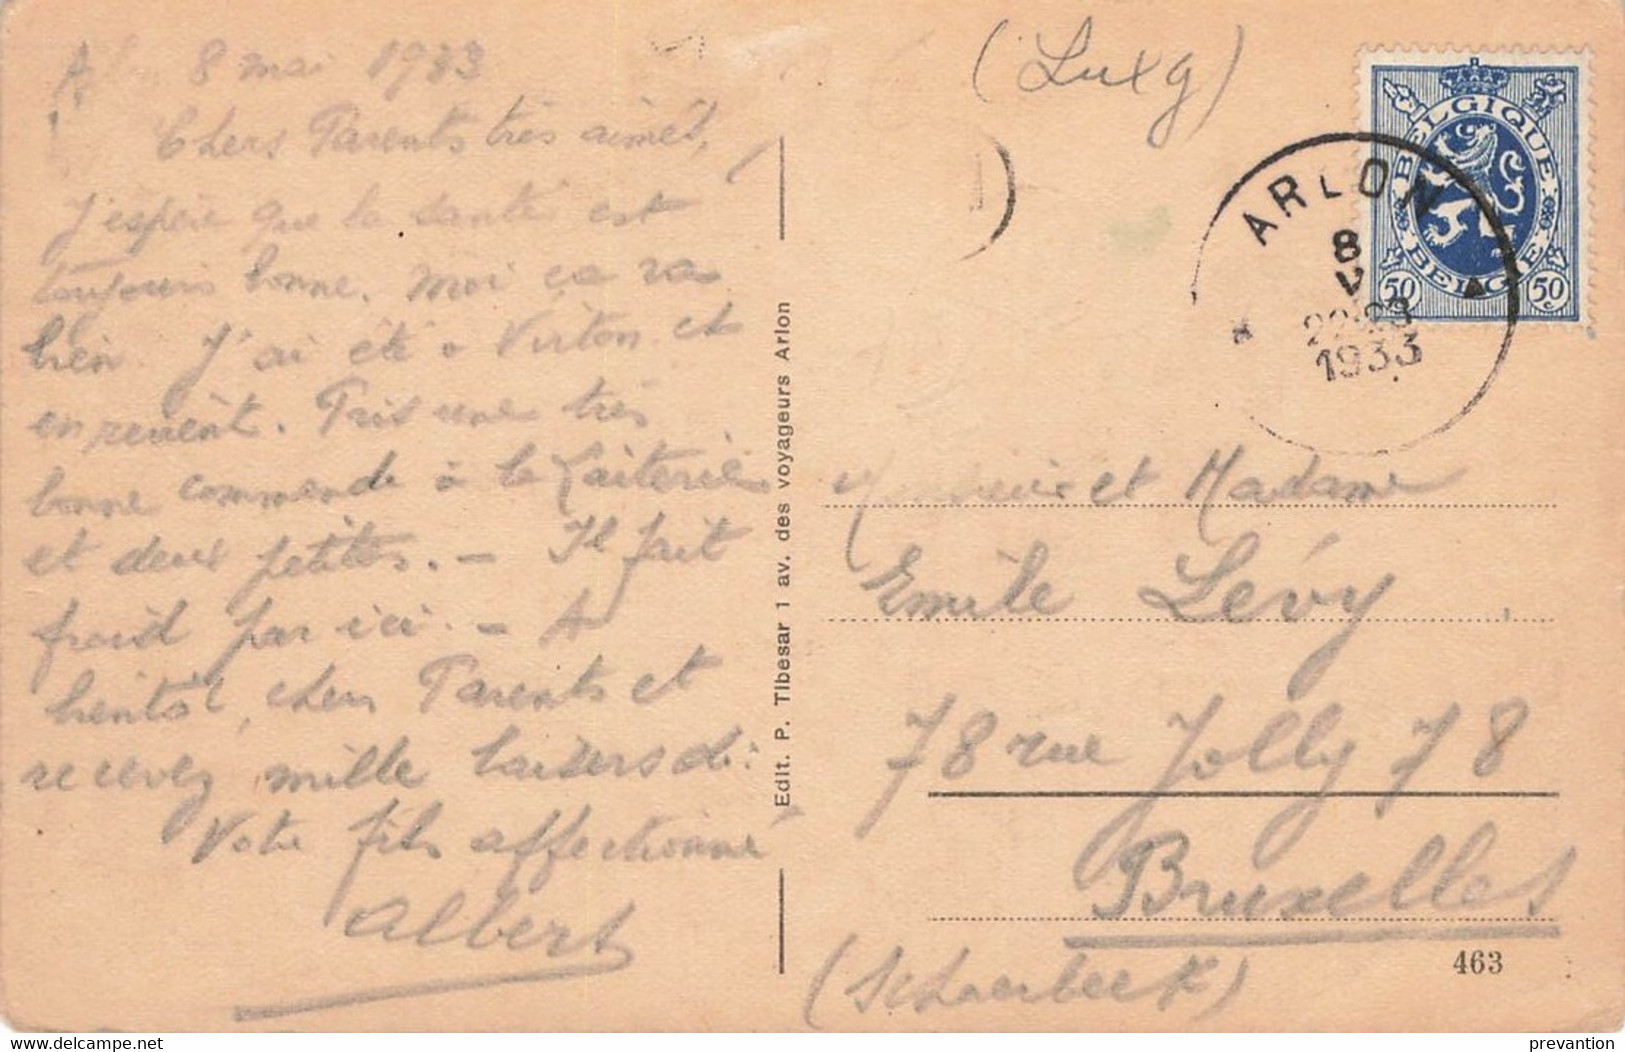 8 mai 1933
Chers Parents très aimés,
J'espère que la santé est
toujours bonne. Moi ça va
bien. J'ai été à Virton et
en revient. Pris une très
bonne commende à la Laiterie
et deux petites. — Il fait
froid par ici. — A
bientôt, chers Parents et
recevez mille baisers de:
Votre fils affectionné
Albert
Edit. P. Tibesar 1 av. des voyageurs Arlon
(Luxg)
BELGIQUE
BELGIE
50c 50c
ARLON
8
V
22-23
1933
Monsieur et Madame
Emile Lévy
78 rue Jolly 78
Bruxelles
(Schaerbeek)
463
delcampe.net
prevantion